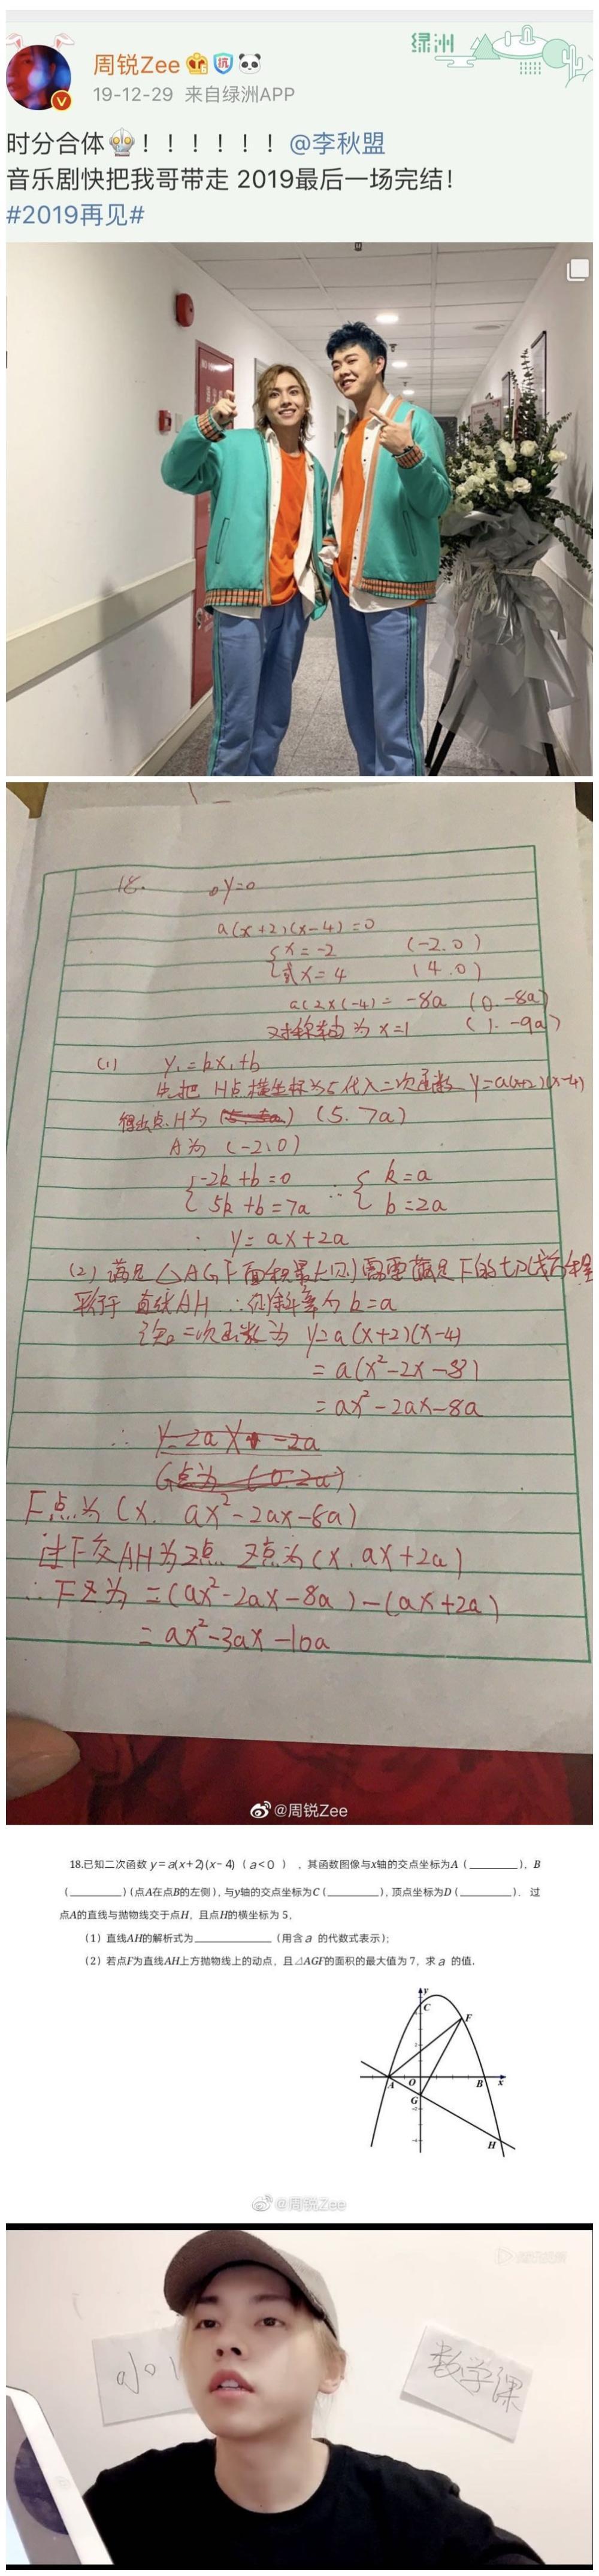 绿洲
周锐Zee
19-12-29 来自绿洲APP
时分合体！！！！！！@李秋盟
音乐剧快把我哥带走 2019最后一场完结！
#2019再见#
18. y=0
a(x+2)(x-4)=0
{x=-2 (-2.0)
或x=4 (4.0)
a(2×(-4)=-8a (0.-8a)
对称轴为x=1 (1.-9a)
(1) y₁=kx₁+b
先把H点横坐标为5代入二次函数y=a(x+2)(x-4)
得出点H为 (5.7a)
A为(-2.0)
{-2k+b=0 ∴ {k=a
5k+b=7a b=2a
∴ y=ax+2a
(2) 满足△AGF面积最大则需要满足F的切线方程
平行于直线AH ∴则斜率为k=a
设。二次函数为 y=a(x+2)(x-4)
=a(x²-2x-8)
=ax²-2ax-8a
∴ y=2ax-2a
G点为(0.2a)
F点为(x. ax²-2ax-8a)
过F交AH为Z点 Z点为(x.ax+2a)
∴FZ为=(ax²-2ax-8a)-(ax+2a)
=ax²-3ax-10a
@周锐Zee
18.已知二次函数y=a(x+2)(x-4)（a<0），其函数图像与x轴的交点坐标为A（________），B
（________）(点A在点B的左侧)，与y轴的交点坐标为C（________），顶点坐标为D（________）．过
点A的直线与抛物线交于点H，且点H的横坐标为5，
（1）直线AH的解析式为____________（用含a的代数式表示）；
（2）若点F为直线AH上方抛物线上的动点，且△AGF的面积的最大值为7，求a的值．
y
C
F
2
A O B x
G
-2
-4
H
@周锐Zee
数学课